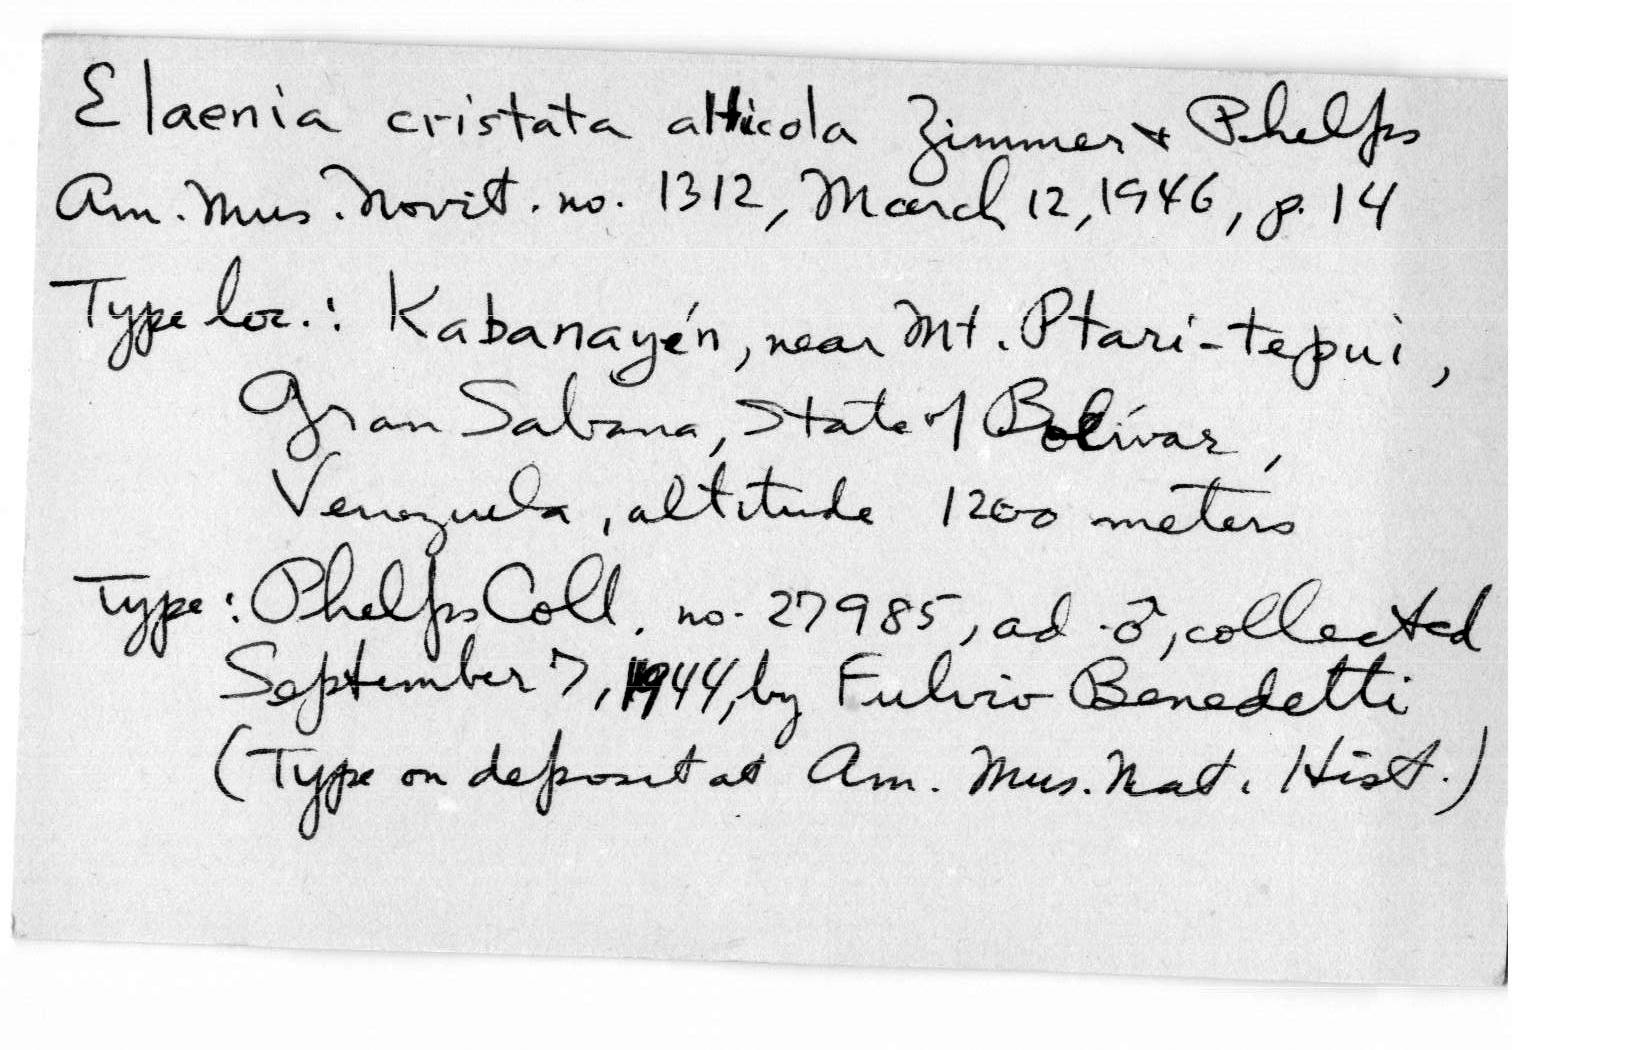 Elaenia cristata alticola Zimmer & Phelps
Am. Mus. Novit. no. 1312, March 12, 1946, p. 14
Type loc.: Kabanayén, near Mt. Ptari-tepui,
Gran Sabana, State of Bolívar,
Venezuela, altitude 1200 meters
Type: Phelps Coll. no. 27985, ad. ♂, collected
September 7, 1944, by Fulvio Benedetti
(Type on deposit at Am. Mus. Nat. Hist.)